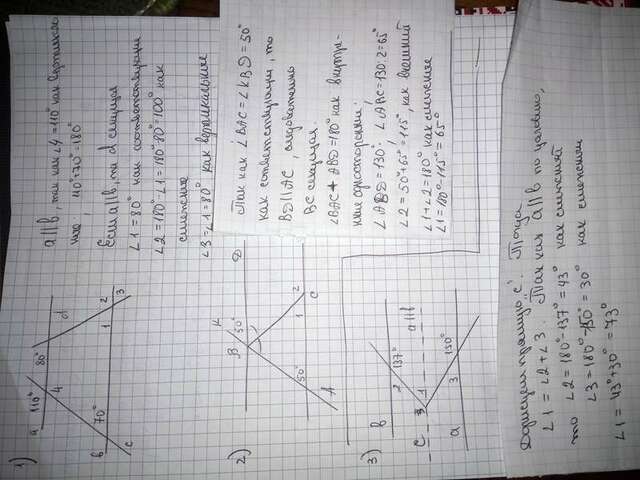 1)
a 110° 80°
4 d
1 2
3
b 70°
c
a||b, так как ∠4=110° как вертикаль
ные 110°+70°=180°
Если a||b, то d секущая
∠1=80° как соответствующие
∠2=180°-∠1=180°-80°=100° как
смежные
∠3=∠1=80° как вертикальные
2)
K D
50°
B
1 2
C
50°
A
Так как ∠BAC=∠KBD=50°
как соответствующие, то
BD||AC, следовательно
BC секущая.
∠BAC+ABD=180° как внутрен-
ние односторонние.
∠ABD=130°, ∠ABC=130:2=65°
∠2=50°+65°=115°, как внешний
∠1+∠2=180° как смежные
∠1=180°-115°=65°
3)
b 137°
2
a||b
C 3 1
150°
a 3
Дорисуем прямую "c". Тогда
∠1=∠2+∠3. Так как a||b по условию,
то ∠2=180°-137°=43° как смежный
∠3=180°-150°=30° как смежный
∠1=43°+30°=73°